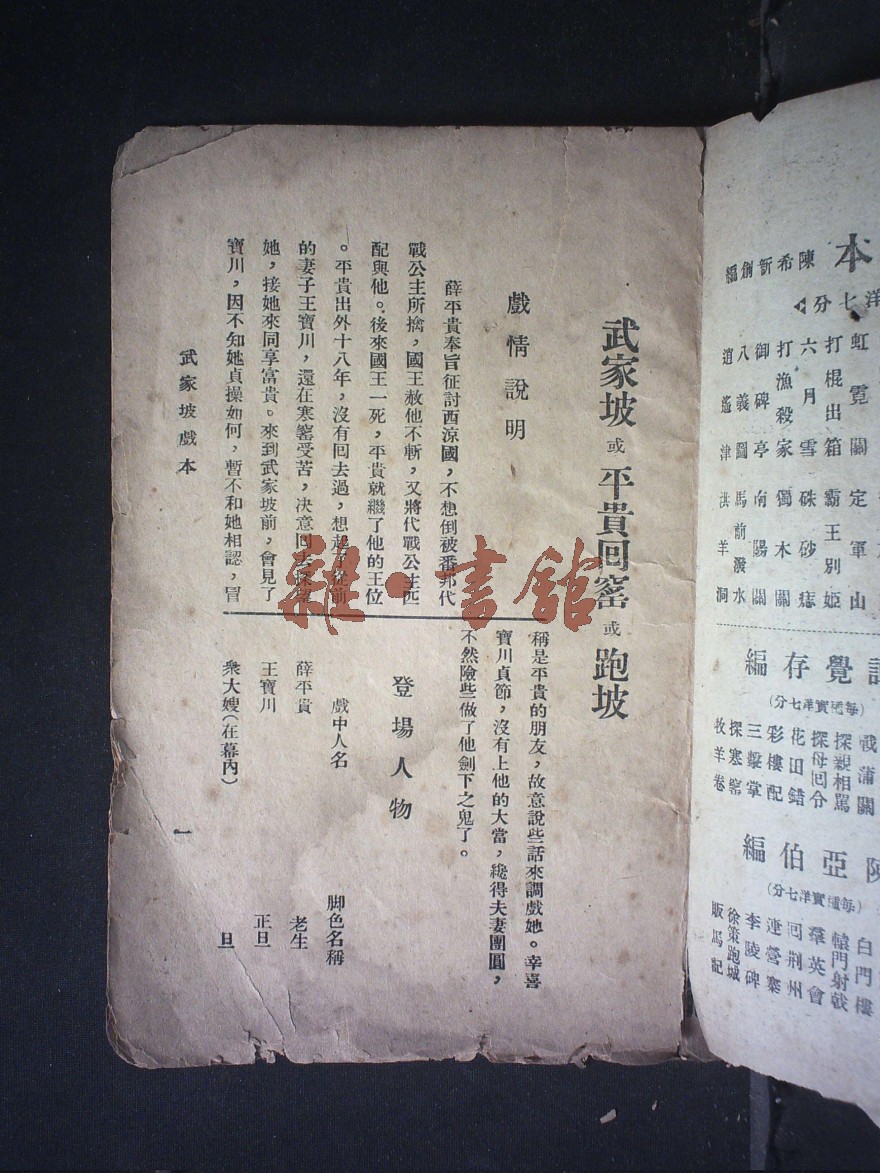 武家坡 或 平貴回窰 或 跑坡
戲情說明
薛平貴奉旨征討西涼國，不想倒被番邦代
戰公主所擒，國王赦他不斬，又將代戰公主匹
配與他。後來國王一死，平貴就繼了他的王位
。平貴出外十八年，沒有回去過，想起了從前
的妻子王寶川，還在寒窰受苦，決意回去探望
她，接她來同享富貴。來到武家坡前，會見了
寶川，因不知她貞操如何，暫不和她相認，冒
武家坡戲本
稱是平貴的朋友，故意說些話來調戲她。幸喜
寶川貞節，沒有上他的大當，纔得夫妻團圓，
不然險些做了他劍下之鬼了。
登場人物
戲中人名 脚色名稱
薛平貴 老生
王寶川 正旦
衆大嫂（在幕內） 旦
一
雜·書館
本
陳希新創編
洋七分
虹霓關 定軍山
打棍出箱 霸王別姬
六月雪 硃砂痣
打漁殺家 獨木關
御碑亭 南陽關
八義圖 馬前潑水
逍遙津 洪羊洞
覺存編
（每冊實洋七分）
戰蒲關
探親相罵
探母回令
花田錯
彩樓配
三擊掌
探寒窰
牧羊卷
陳亞伯編
（每冊實洋七分）
白門樓
轅門射戟
羣英會
回荆州
連營寨
李陵碑
徐策跑城
販馬記